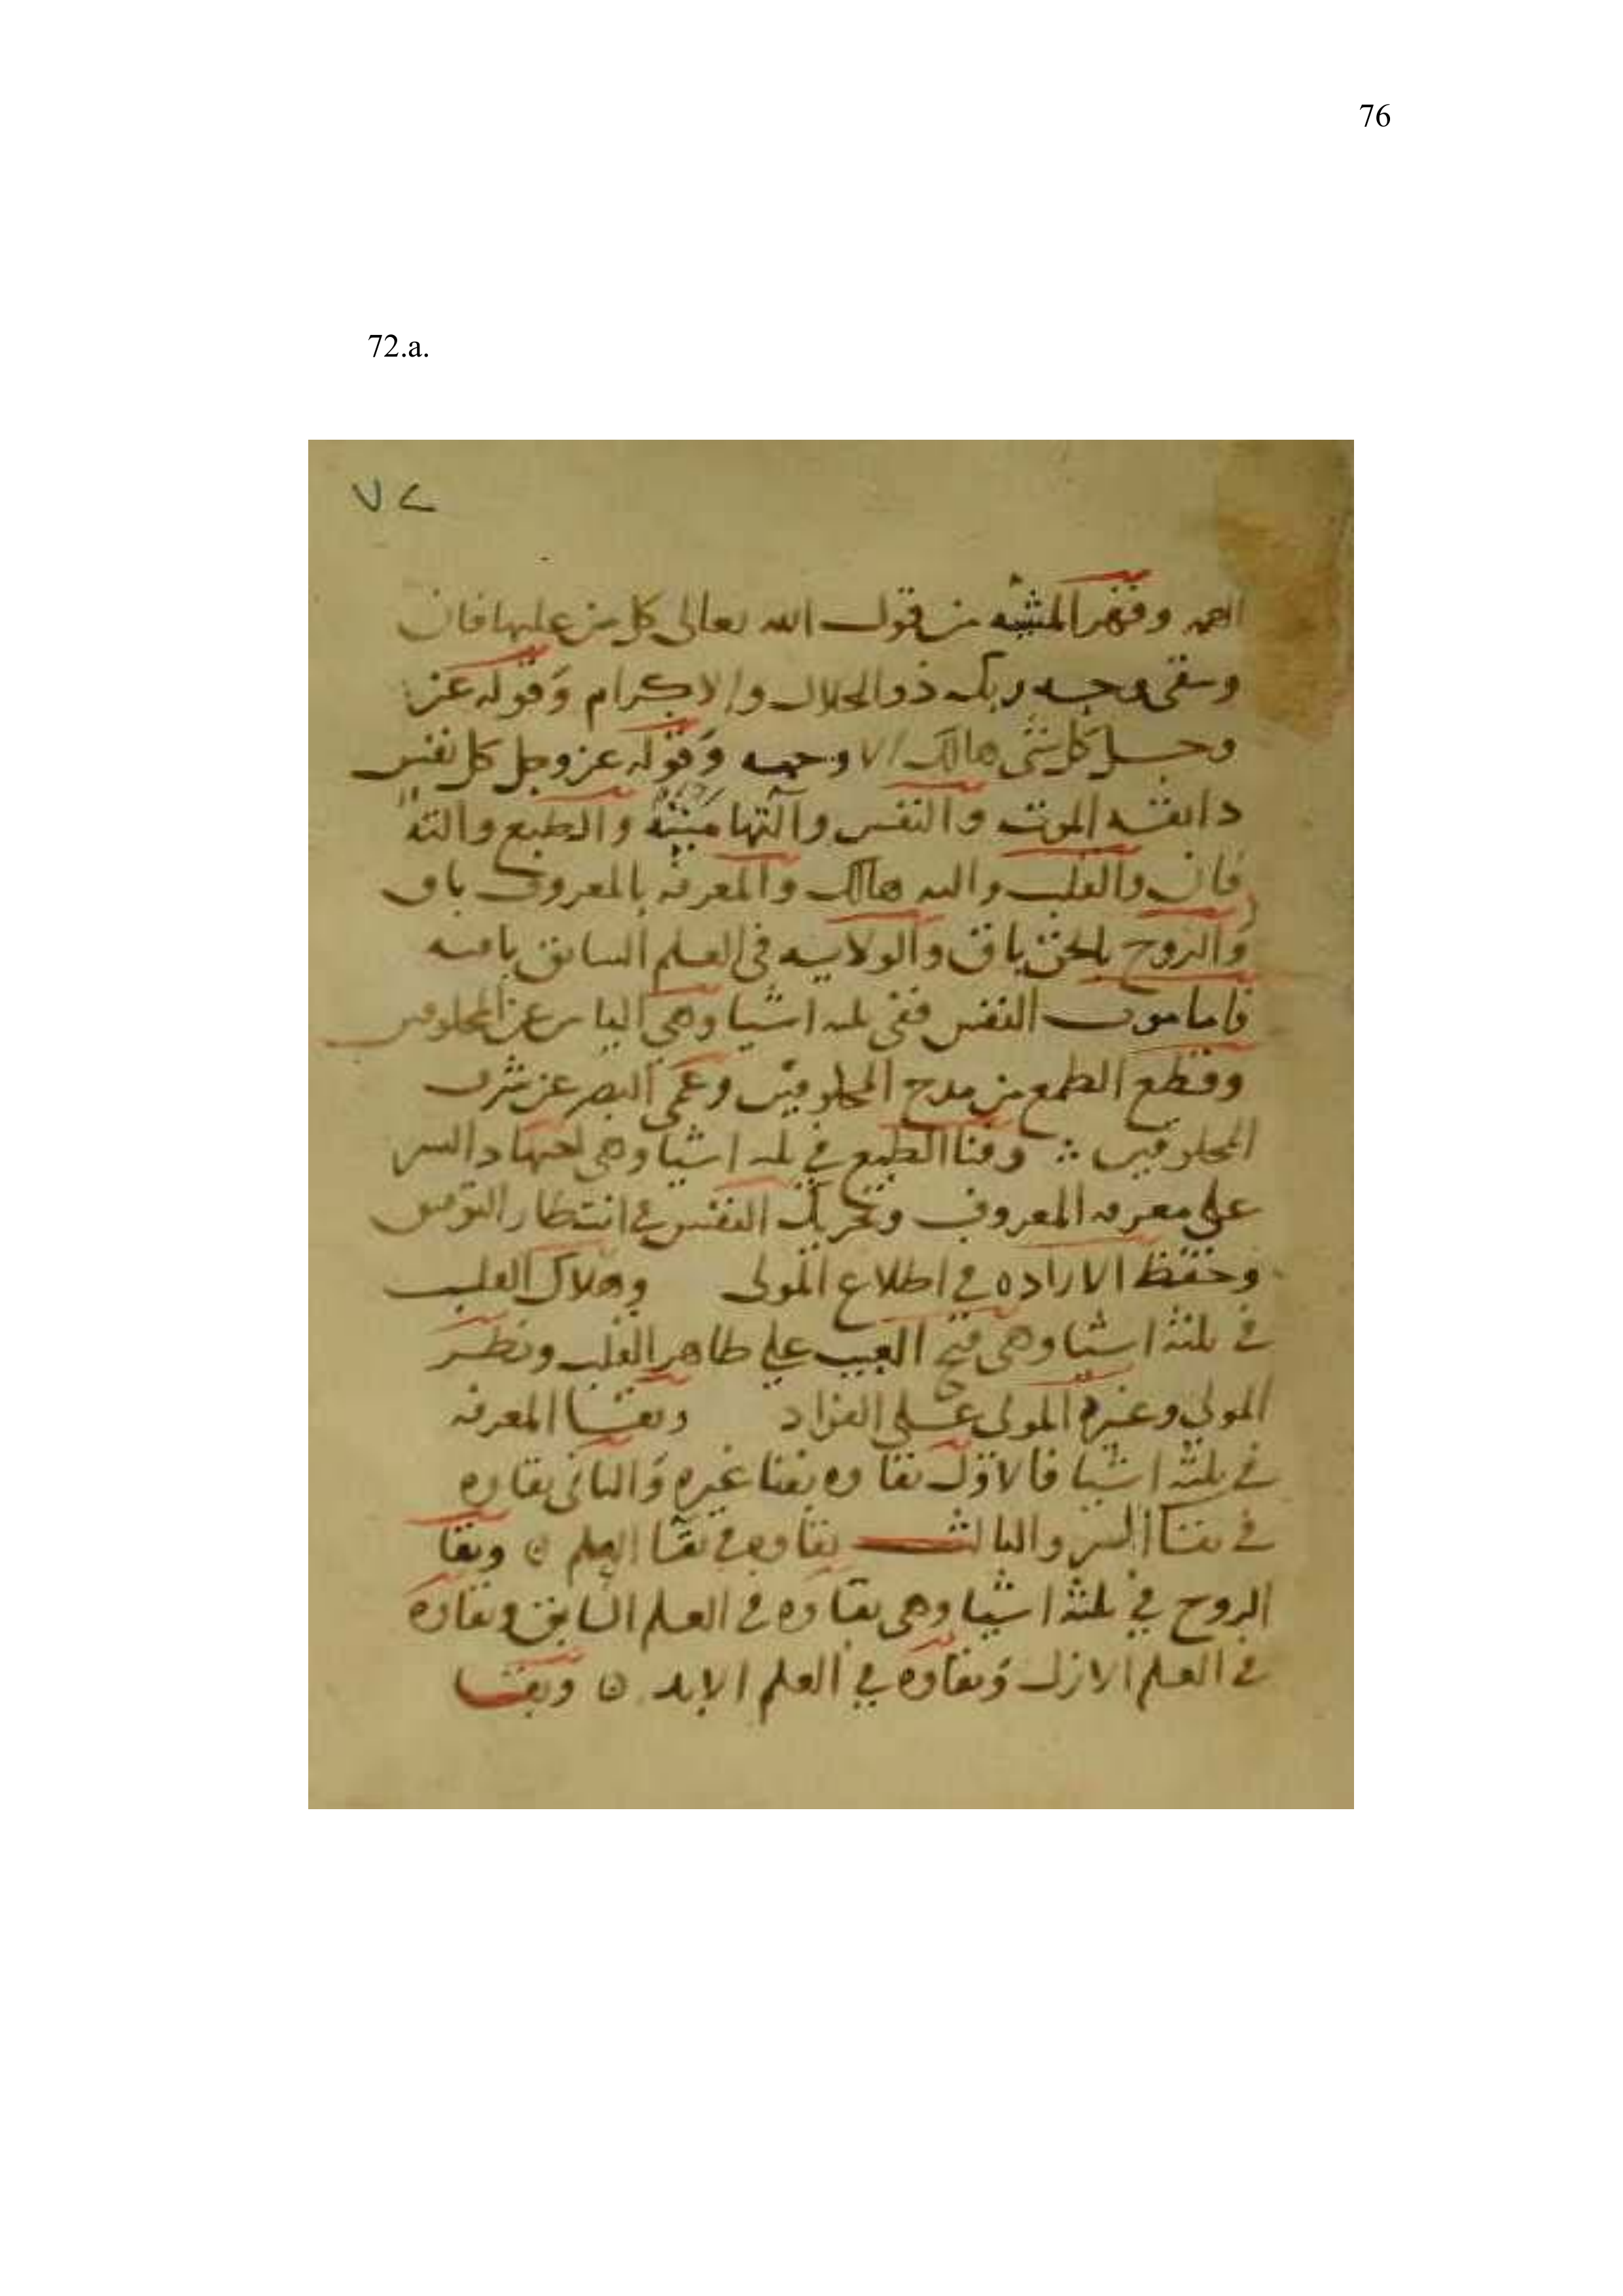 76
72.a.
٧٢
وقهر المشيه من قول الله تعالى كل من عليها فان
وىىقى وجه ربك ذو الجلال والاكرام وقوله عز
وجل كل شى هالك الا وجهه وقوله عز وجل كل نفس
دايقه الموت والنفس والتها ميته والطبع والته
فان والقلب والته هالك والمعرفه بالمعروف باق
والروح بالحق باق والولايه فى العلم السابق باقيه
فاما موت النفس ففى ثلثه اشيا وهى الياس عن المخلوقين
وقطع الطمع من مدح المخلوقين وعمى البصر عن شرف
المخلوقين وفنا الطبع في ثلثه اشيا وهى اجتهاد السر
على معرفه المعروف وتحريك النفس في انتظار التوفيق
وحفظ الاراده في اطلاع المولى وهلاك القلب
في ثلثة اشيا وهى فتح الغيب على ظاهر القلب ونظر
المولى وغيرة المولى على الفواد وبقا المعرفه
في ثلثة اشيا فالاول بقاوه بفنا غيره والثانى بقاوه
في بقا السر والثالث بقاوه في بقا العلم ٥ وبقا
الروح في ثلثة اشيا وهى بقاوه في العلم السابق وبقاوه
في العلم الازل وبقاوه في العلم الابد ٥ وبقا